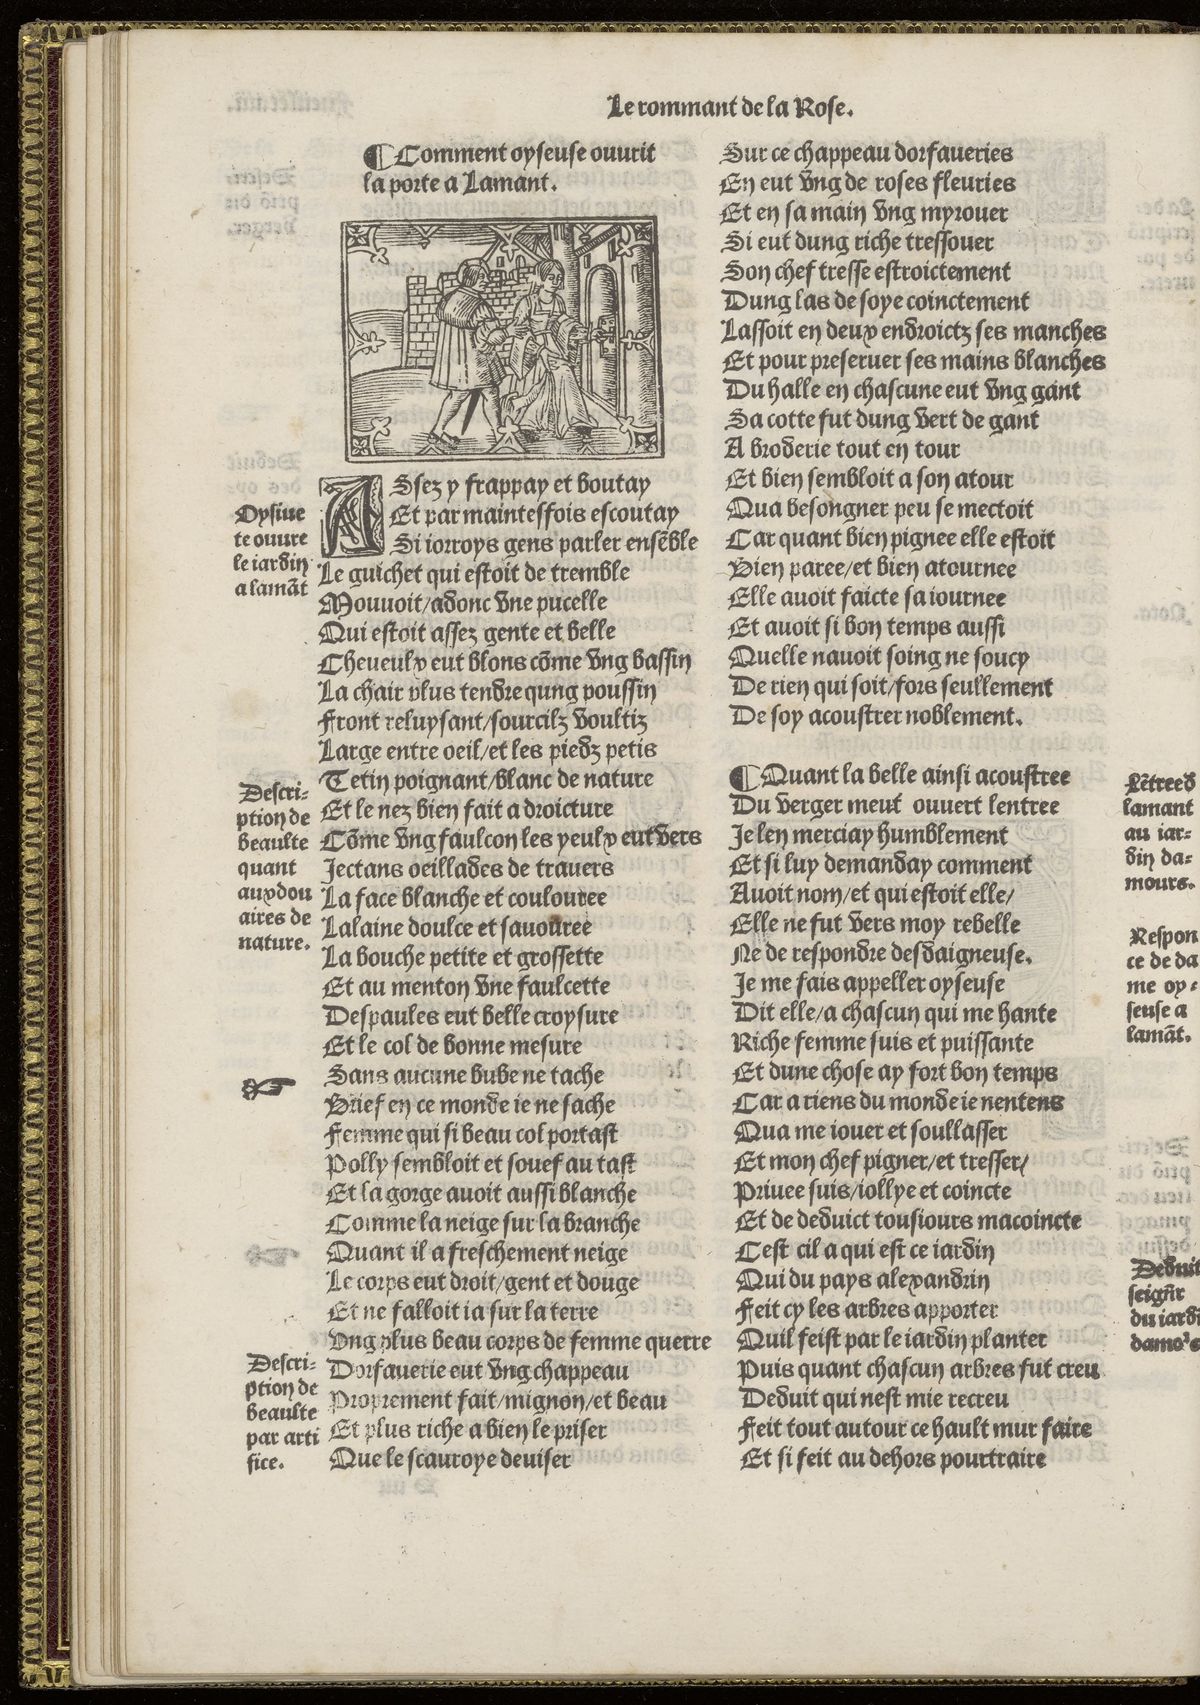 Le rommant de la Rose.
¶ Comment oyseuse ouurit
la porte a Lamant.
ASsez y frappay et boutay
Et par maintesfois escoutay
Si iorroys gens parler ensēble
Le guichet qui estoit de tremble
Mouuoit/adonc vne pucelle
Qui estoit assez gente et belle
Cheueulx eut blons cōme vng bassin
La chair plus tendre qung poussin
Front reluysant/sourcilz voultiz
Large entre oeil/et les piedz petis
Tetin poignant/blanc de nature
Et le nez bien fait a droicture
Cōme vng faulcon les yeulx eut vers
Jectans oeillades de trauers
La face blanche et coulouree
Lalaine doulce et sauouree
La bouche petite et grossette
Et au menton vne faulcette
Despaules eut belle croysure
Et le col de bonne mesure
Sans aucune bube ne tache
Brief en ce monde ie ne sache
Femme qui si beau col portast
Polly sembloit et souef au tast
Et la gorge auoit aussi blanche
Comme la neige sur la branche
Quant il a freschement neige
Le corps eut droit/gent et douge
Et ne falloit ia sur la terre
Vng plus beau corps de femme querre
Dorfauerie eut vng chappeau
Proprement fait/mignon/et beau
Et plus riche a bien le priser
Que le scauroye deuiser
Oysiue
te ouure
le iardin
a lamāt
Descri-
ption de
beaulte
quant
aux dou
aires de
nature.
Descri-
ption de
beaulte
par arti
fice.
Sur ce chappeau dorfaueries
En eut vng de roses fleuries
Et en sa main vng myrouer
Si eut dung riche tressouer
Son chef tresse estroictement
Dung las de soye coinctement
Lassoit en deux endroictz ses manches
Et pour preseruer ses mains blanches
Du halle en chascune eut vng gant
Sa cotte fut dung vert de gant
A broderie tout en tour
Et bien sembloit a son atour
Qua besongner peu se mectoit
Car quant bien pignee elle estoit
Bien paree/et bien atournee
Elle auoit faicte sa iournee
Et auoit si bon temps aussi
Quelle nauoit soing ne soucy
De rien qui soit/fors seullement
De soy acoustrer noblement.
¶ Quant la belle ainsi acoustree
Du verger meut ouuert lentree
Je len merciay humblement
Et si luy demanday comment
Auoit nom/et qui estoit elle/
Elle ne fut vers moy rebelle
Ne de respondre desdaigneuse.
Je me fais appeller oyseuse
Dit elle/a chascun qui me hante
Riche femme suis et puissante
Et dune chose ay fort bon temps
Car a riens du monde ie nentens
Qua me iouer et soullasser
Et mon chef pigner/et tresser/
Priuee suis/iollye et coincte
Et de deduict tousiours macoincte
Cest cil a qui est ce iardin
Qui du pays alexandrin
Feit cy les arbres apporter
Quil feist par le iardin planter
Puis quant chascun arbres fut creu
Deduit qui nest mie recreu
Feit tout autour ce hault mur faire
Et si feit au dehors pourtraire
Lētree d
lamant
au iar-
din da-
mours.
Respon
ce de da
me oy-
seuse a
lamāt.
Deduit
seigñr
du iardi
damo's